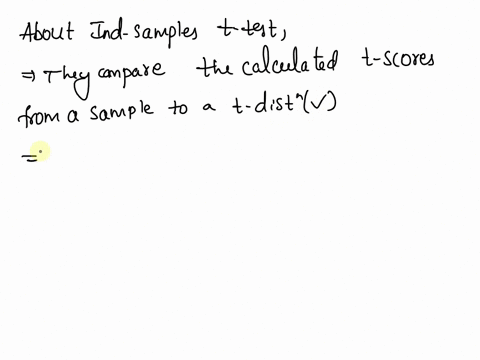 About Ind-samples t-test,
⇒ They compare the calculated t-scores
from a sample to a t-distⁿ(✓)
=